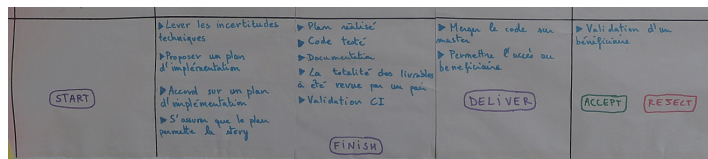 START
▶ Lever les incertitudes
techniques
▶ Proposer un plan
d'implémentation
▶ Accord sur un plan
d'implémentation
▶ S'assurer que le plan
permette la story
▶ Plan réalisé
▶ Code testé
▶ Documentation
▶ La totalité des livrables
à été revue par un pair
▶ Validation CI
FINISH
▶ Merger le code sur
master
▶ Permettre l'accès au
beneficiaire
DELIVER
▶ Validation d'un
bénéficiaire
ACCEPT
REJECT